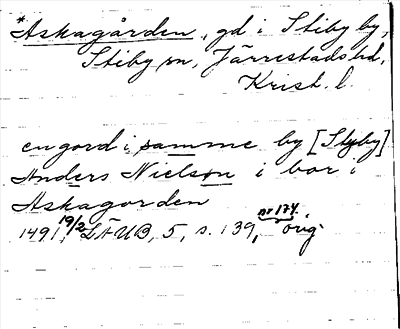 *Askagården, gd i Stiby by,
Stiby sn, Järrestads hd,
Krist. l.
en gord i samme by [Styby]
Anders Nielson i bor i
Askagorden
1491 19/2 LÄUB, 5, s. 139, nr 174. orig.